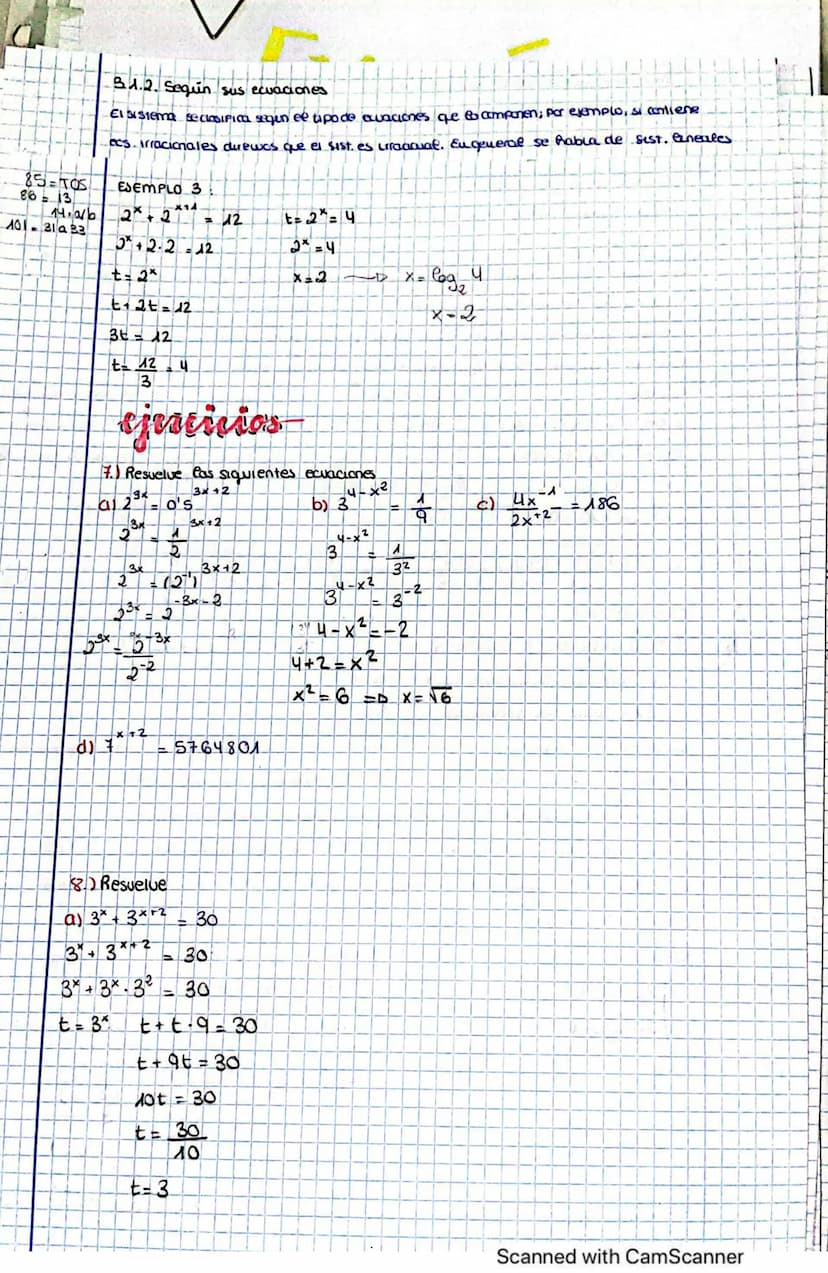 3.1.2. Según sus ecuaciones
El sistema se clasifica según el tipo de ecuaciones que lo componen; por ejemplo, si contiene
ecs. irracionales diremos que el sist. es irracional. En general se habla de sist. lineales
85 = TOS
86 = 13
14, a/b
101 = 31 a 33
EJEMPLO 3:
2^x + 2^{x+1} = 12
2^x + 2·2 = 12
t = 2^x
t + 2t = 12
3t = 12
t = 12/3 = 4
t = 2^x = 4
2^x = 4
x = 2 → x = log_2 4
x = 2
ejercicios
7.) Resuelve las siguientes ecuaciones
a) 2^{3x} = 0'5^{3x+2}
2^{3x} = 1/2^{3x+2}
2^{3x} = (2^{-1})^{3x+2}
2^{3x} = 2^{-3x-2}
2^{3x} = 2^{-3x}/2^{-2}
b) 3^{4-x^2} = 1/9
3^{4-x^2} = 1/3^2
3^{4-x^2} = 3^{-2}
4 - x^2 = -2
4 + 2 = x^2
x^2 = 6 ⇒ x = √6
c) 4x^{-1}/2x^{+2} = 186
d) 7^{x+2} = 5764801
8.) Resuelve
a) 3^x + 3^{x+2} = 30
3^x + 3^{x+2} = 30
3^x + 3^x · 3^2 = 30
t = 3^x t + t · 9 = 30
t + 9t = 30
10t = 30
t = 30/10
t = 3
Scanned with CamScanner